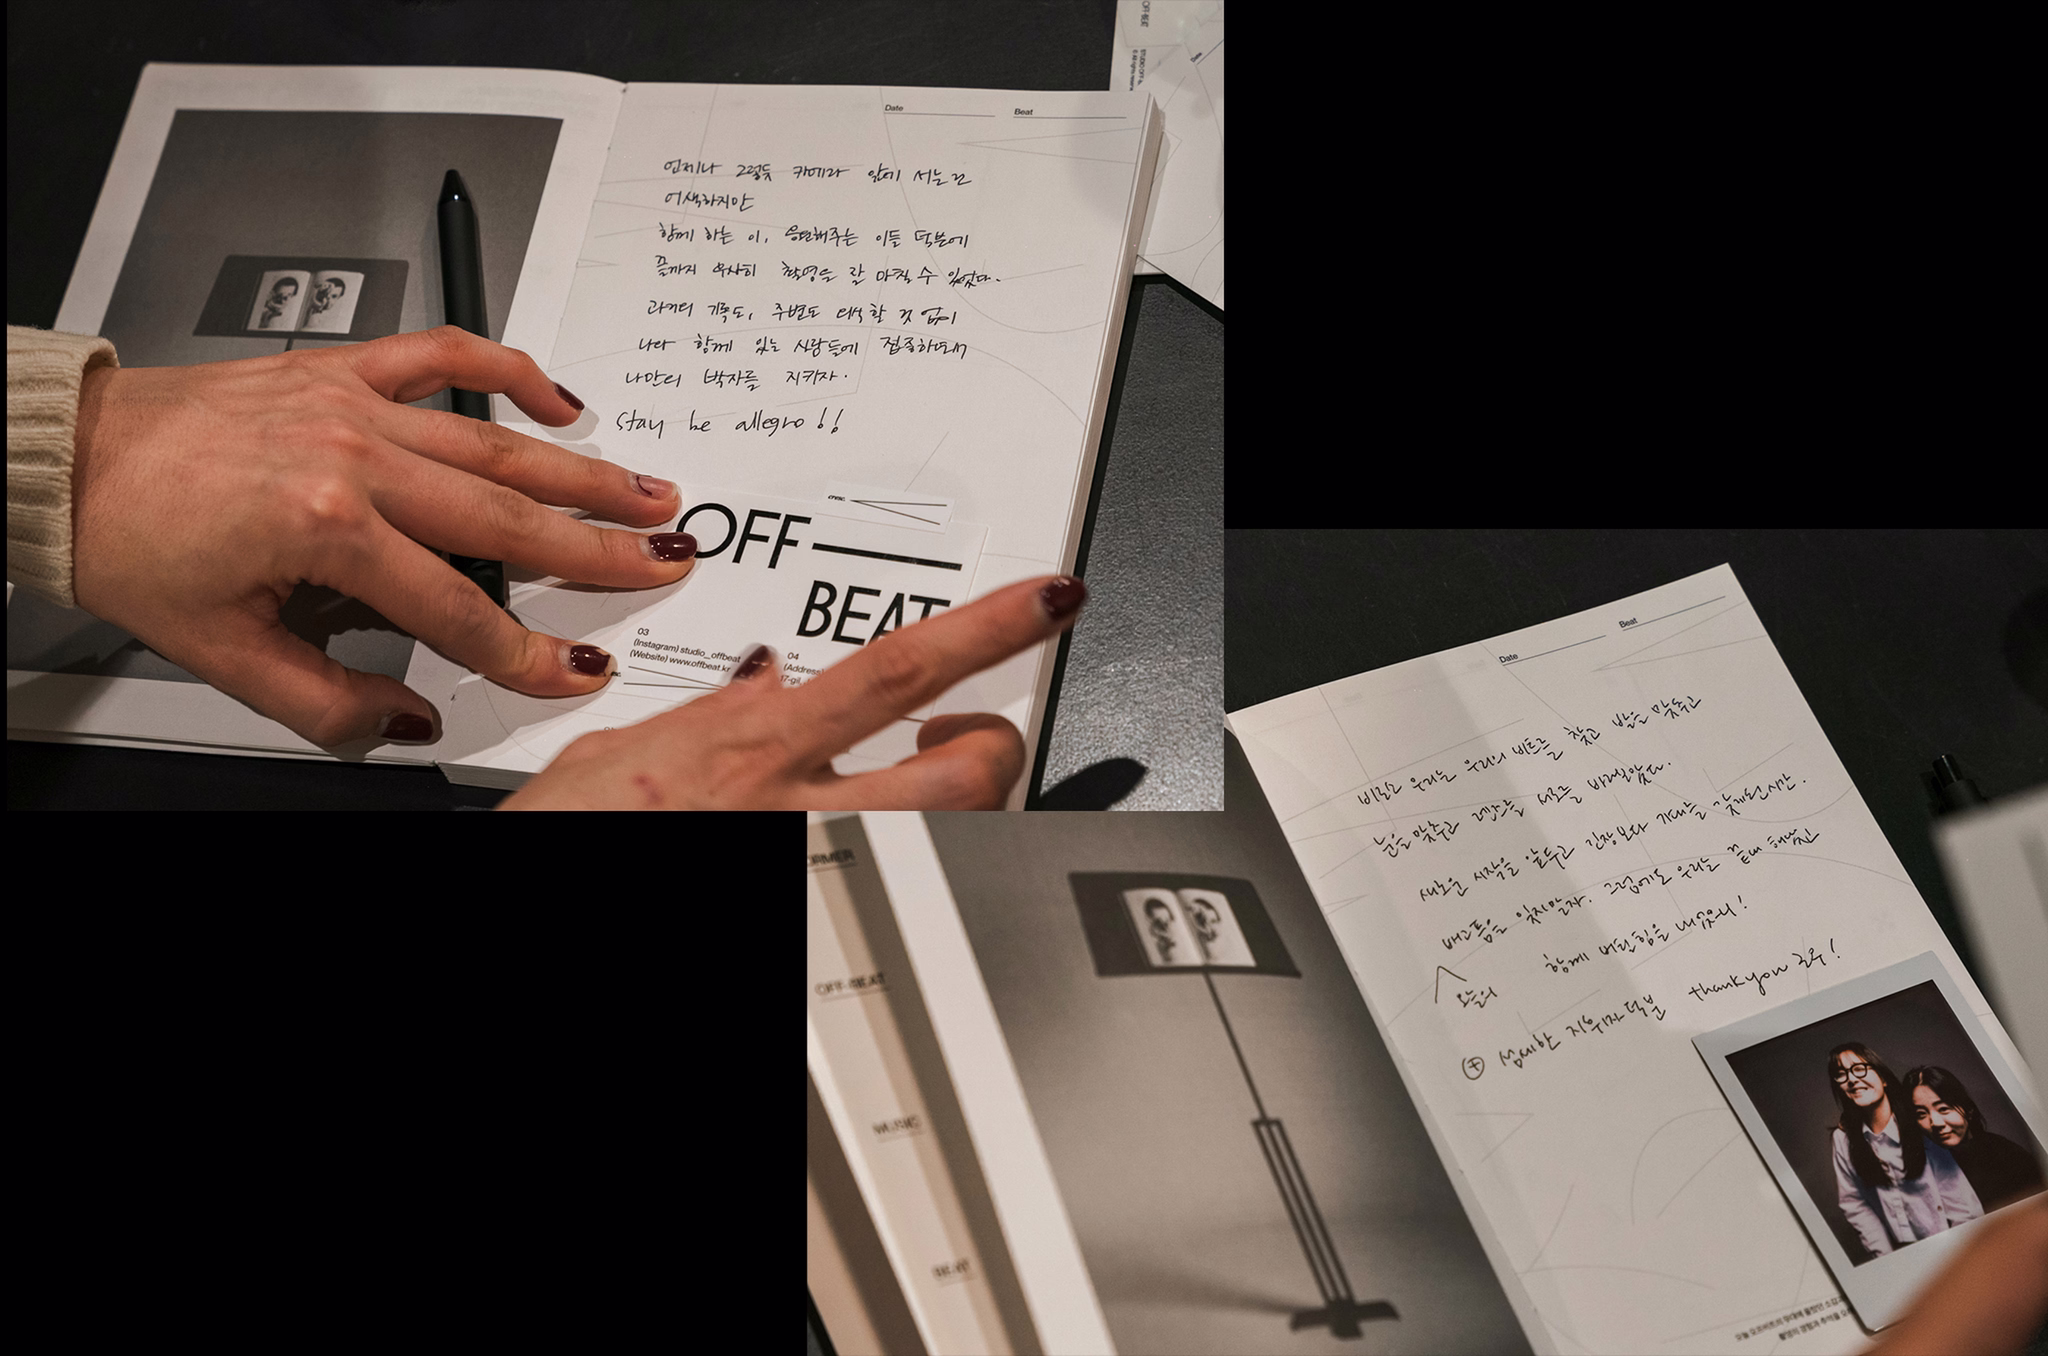 Date
Beat
언제나 그렇듯 카메라 앞에 서는 건
어색하지만
함께 하는 이, 응원해주는 이들 덕분에
끝까지 무사히 촬영을 잘 마칠 수 있었다.
과거의 기록도, 주변도 의식할 것 없이
나와 함께 있는 사람들에 집중하면서
나만의 박자를 지키자.
stay be allegro!!
cresc.
OFF
BEAT
03
(Instagram) studio_offbeat
(Website) www.offbeat.kr
04
(Address)
17-gil,
OFF-BEAT
Date
Date
Beat
비로소 우리는 우리의 비트를 찾고 발을 맞추고
눈을 맞추고 렌즈를 서로를 바라보았다.
새로운 시작을 앞두고 긴장보다 기대를 갖게된 시간.
배고픔을 잊지말자. 그럼에도 우리는 끝내 해냈신
오늘의
함께 버틴 힘을 내었으니!
⊕ 섬세한 지휘자 덕분 thank you
OFF-BEAT
MUSIC
BEAT
오늘 오프비트의 무대에 올랐던 소감과